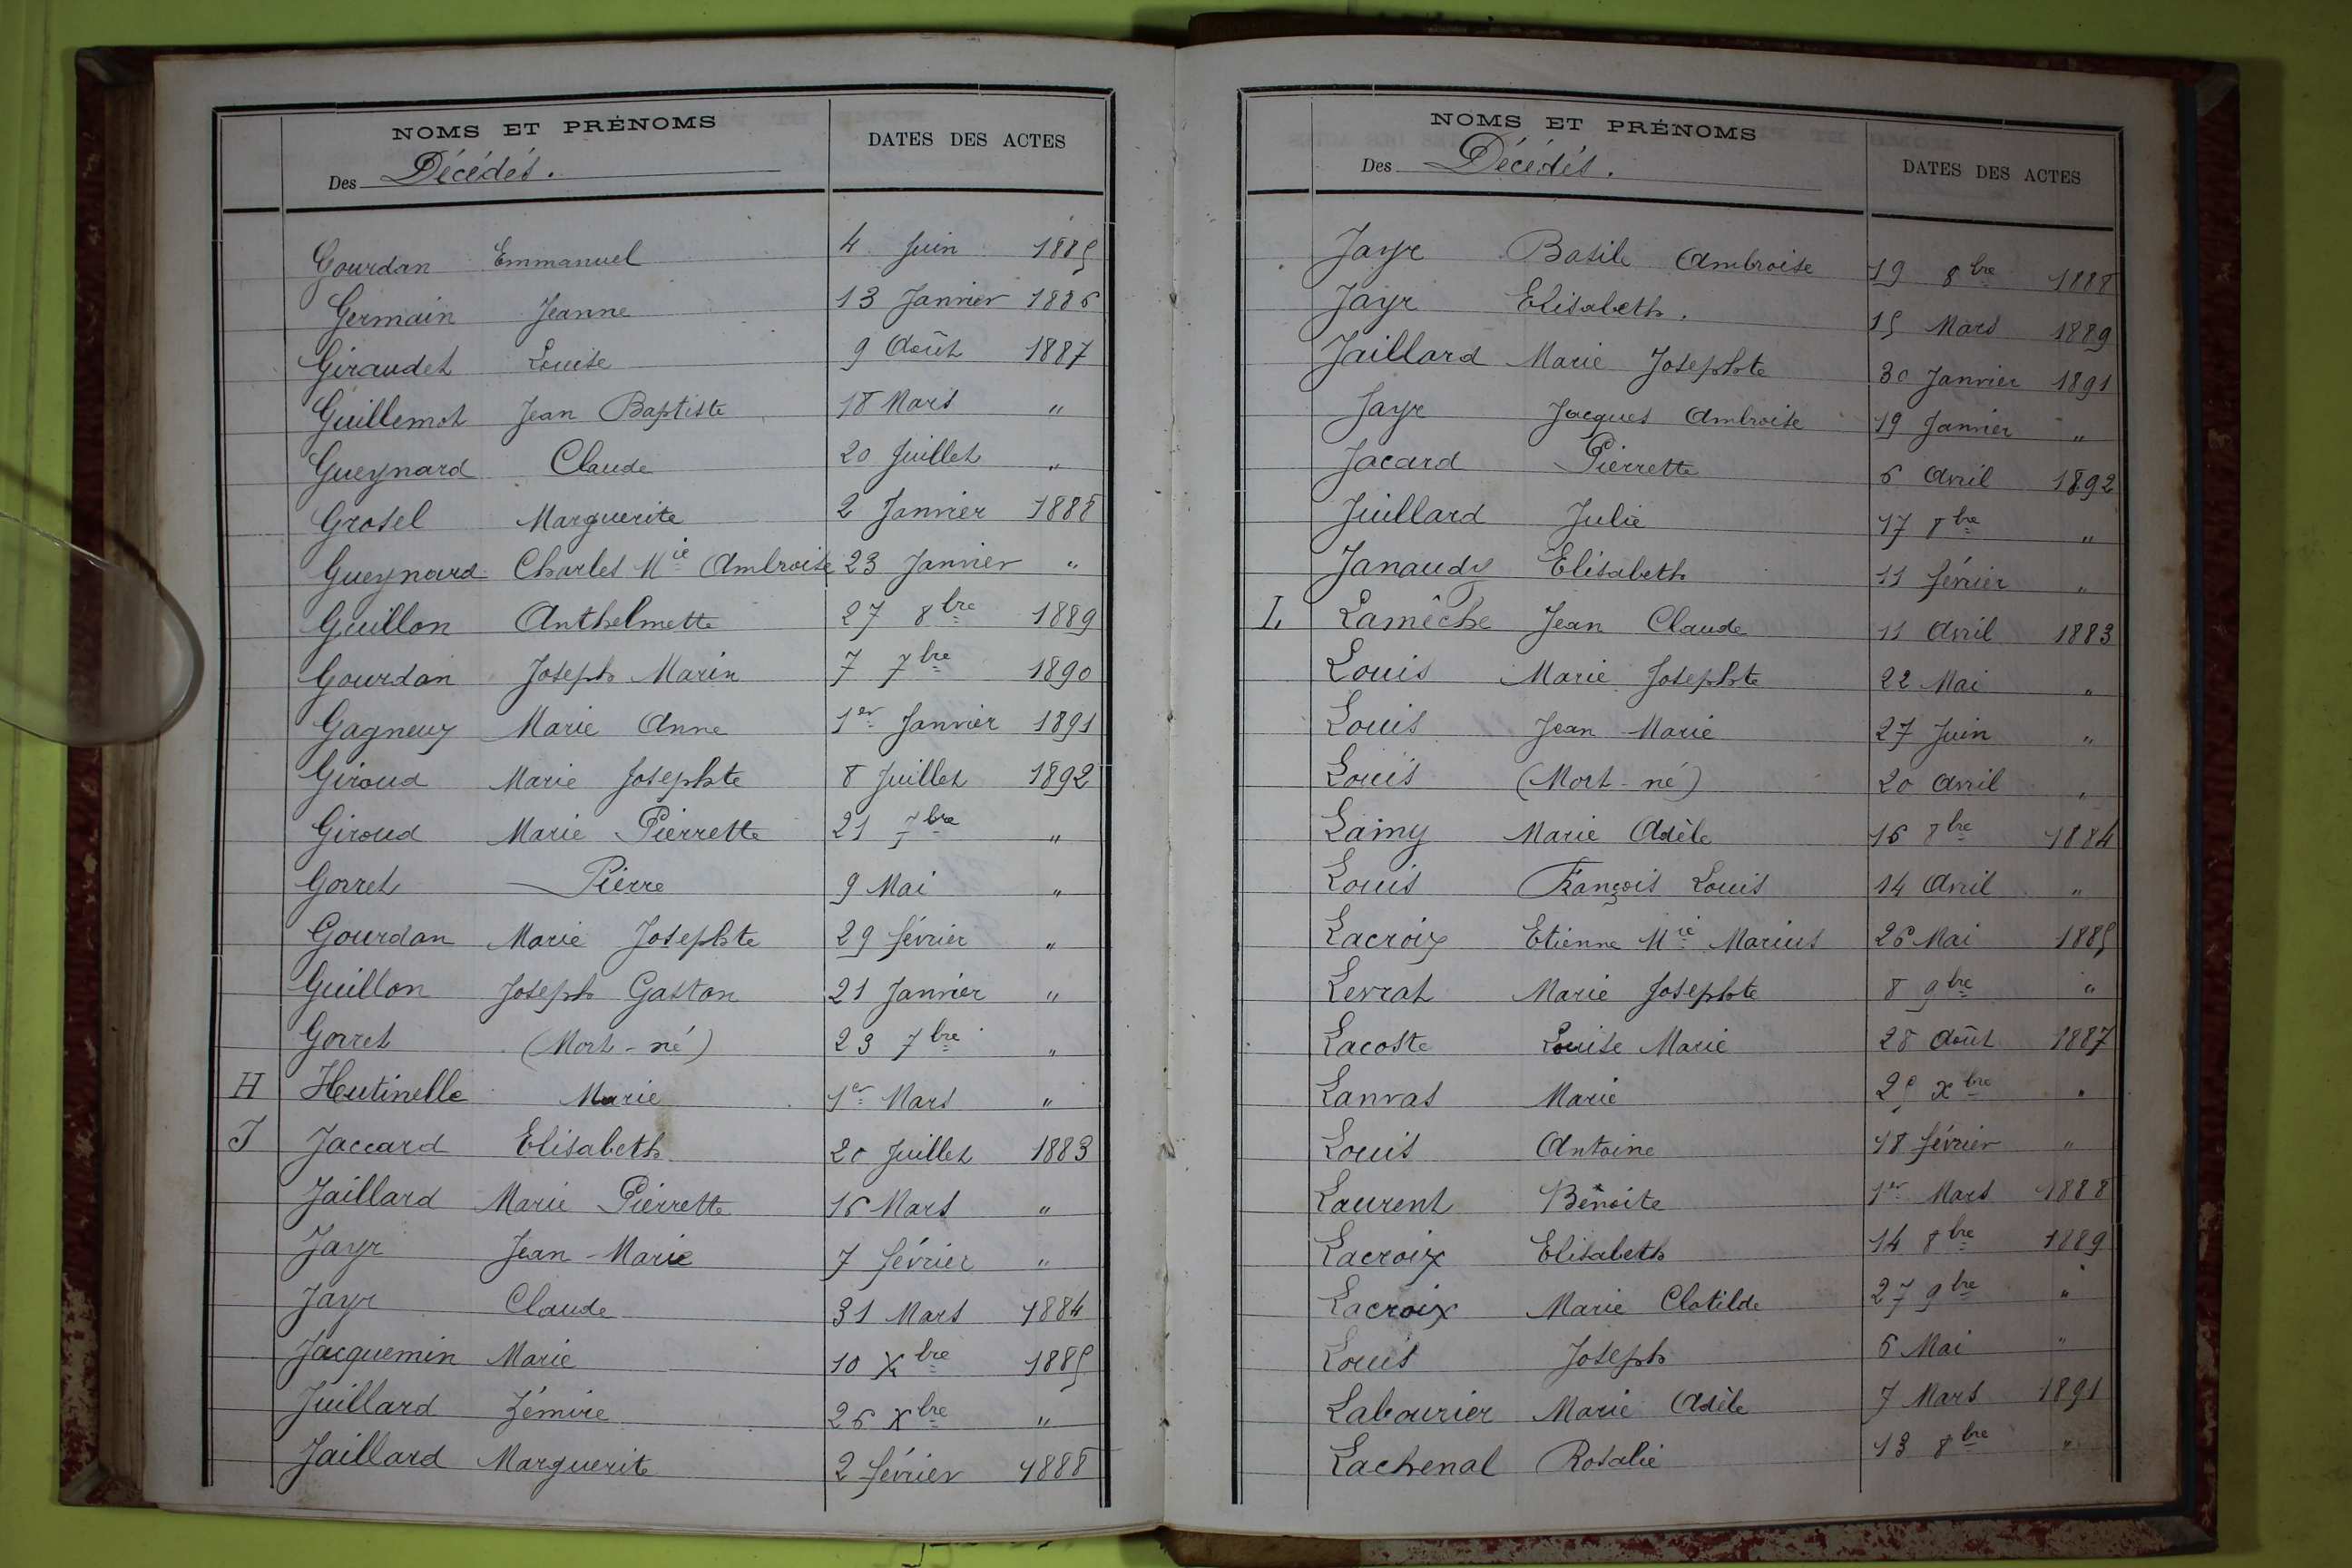 NOMS ET PRÉNOMS
Des Décédés.
DATES DES ACTES
Gourdan Emmanuel 4 Juin 1885
Germain Jeanne 13 Janvier 1886
Giraudet Louise 9 Août 1887
Guillemot Jean Baptiste 18 Mars "
Gueynard Claude 20 Juillet "
Grosel Marguerite 2 Janvier 1888
Gueynard Charles Mie Ambroise 23 Janvier "
Guillon Anthelmette 27 8bre 1889
Gourdan Joseph Marin 7 7bre 1890
Gagneux Marie Anne 1er Janvier 1891
Giroud Marie Josephte 8 Juillet 1892
Giroud Marie Pierrette 21 7bre "
Gorret Pierre 9 Mai "
Gourdan Marie Josephte 29 février "
Guillon Joseph Gaston 21 Janvier "
Gorret (Mort-né) 23 7bre "
H Hutinelle Marie 1er Mars "
J Jaccard Elisabeth 20 Juillet 1883
Jaillard Marie Pierrette 16 Mars "
Jayr Jean-Marie 7 février "
Jayr Claude 31 Mars 1884
Jacquemin Marie 10 Xbre 1885
Juillard Zémire 26 Xbre "
Jaillard Marguerite 2 février 1888
NOMS ET PRÉNOMS
Des Décédés.
DATES DES ACTES
Jayr Basile Ambroise 19 8bre 1888
Jayr Elisabeth. 15 Mars 1889
Jaillard Marie Josephte 30 Janvier 1891
Jayr Jacques Ambroise 19 Janvier "
Jacard Pierrette 6 Avril 1892
Juillard Julie 17 8bre "
Janaudy Elisabeth 11 février "
L Lamêche Jean Claude 11 Avril 1883
Louis Marie Josephte 22 Mai "
Louis Jean Marie 27 Juin "
Louis (Mort-né) 20 Avril "
Lamy Marie Adèle 16 8bre 1884
Louis François Louis 14 Avril "
Lacroix Etienne Mie Marius 26 Mai 1885
Levrat Marie Josephte 8 9bre "
Lacoste Louise Marie 28 Août 1887
Lanvas Marie 25 Xbre "
Louis Antoine 18 février "
Laurent Benoite 1er Mars 1888
Lacroix Elisabeth 14 8bre 1889
Lacroix Marie Clotilde 27 9bre "
Louis Joseph 6 Mai "
Labourier Marie Adèle 7 Mars 1891
Lachenal Rosalie 13 8bre "